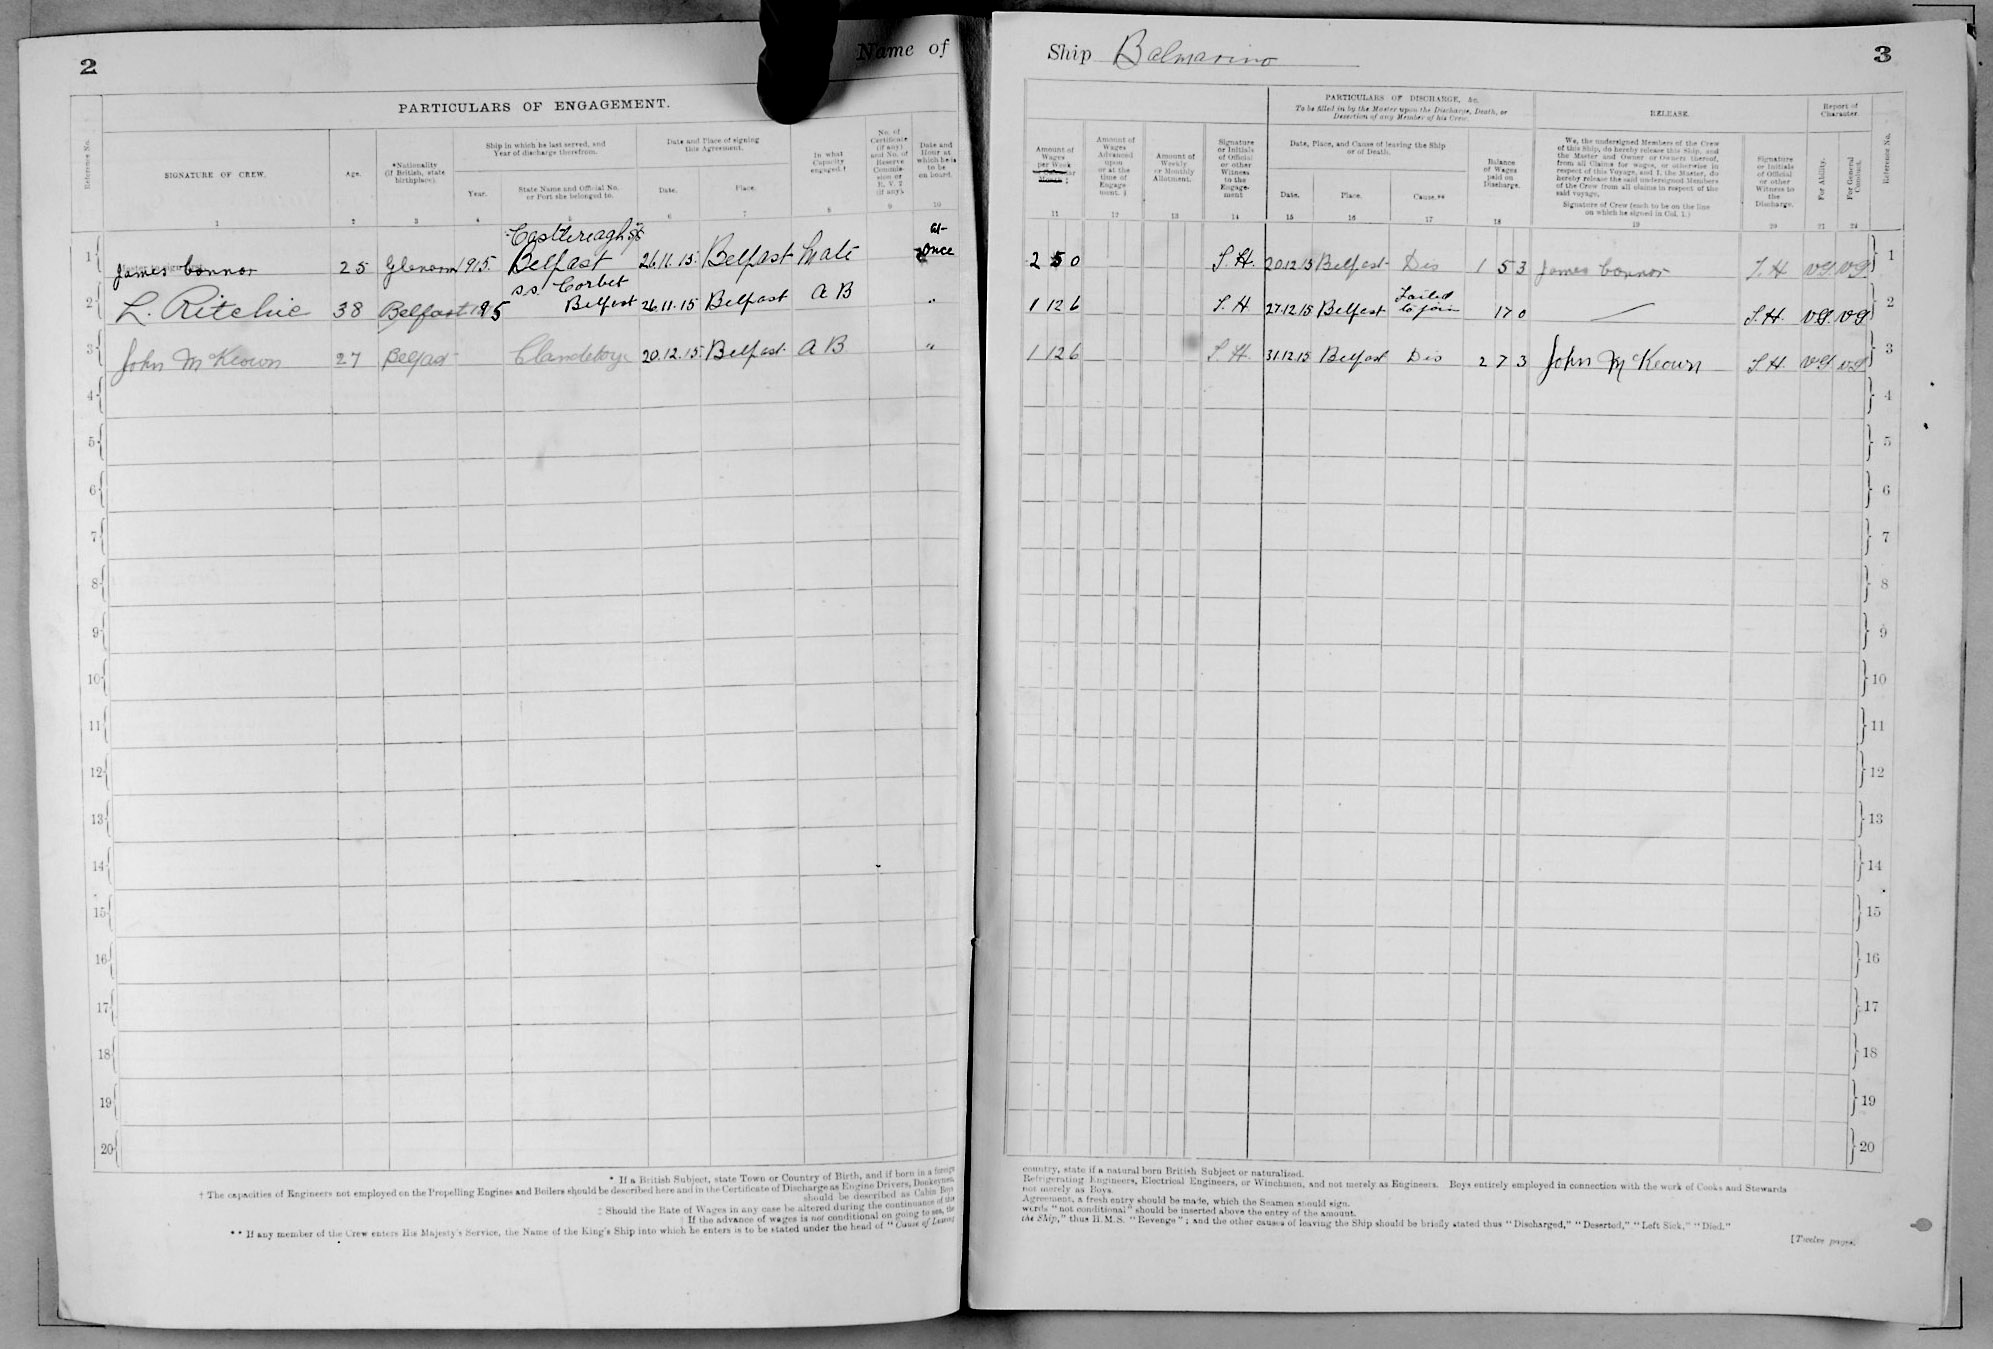 2
Name of
PARTICULARS OF ENGAGEMENT.
Reference No.
SIGNATURE OF CREW.
Age.
*Nationality
(if British, state
birthplace).
Ship in which he last served, and
Year of discharge therefrom.
Year.
State Name and Official No.
or Port she belonged to.
Date and Place of signing
this Agreement.
Date.
Place.
In what
Capacity
engaged.†
No. of
Certificate
(if any)
and No. of
Reserve
Commis-
sion or
R. V. 2
(if any).
Date and
Hour at
which he is
to be
on board.
1 2 3 4 5 6 7 8 9 10
Castlereagh SS at
1 James Connor 25 Glenarm 1915. Belfast 26.11.15. Belfast Mate once
S.S. Corbet
2 L. Ritchie 38 Belfast 1915 Belfast 26.11.15 Belfast A B "
3 John McKeown 27 Belfast Clandeboye 20.12.15 Belfast A B "
4
5
6
7
8
9
10
11
12
13
14
15
16
17
18
19
20
* If a British Subject, state Town or Country of Birth, and if born in a foreign
† The capacities of Engineers not employed on the Propelling Engines and Boilers should be described here and in the Certificate of Discharge as Engine Drivers, Donkeymen
should be described as Cabin Boys
‡ Should the Rate of Wages in any case be altered during the continuance of the
If the advance of wages is not conditional on going to sea, the
** If any member of the Crew enters His Majesty's Service, the Name of the King's Ship into which he enters is to be stated under the head of "Cause of Leaving
Ship Balmarino
3
PARTICULARS OF DISCHARGE, &c.
To be filled in by the Master upon the Discharge, Death, or
Desertion of any Member of his Crew.
RELEASE.
Report of
Character.
Amount of
Wages
per Week
Month ‡
Amount of
Wages
Advanced
upon
or at the
time of
Engage-
ment. ‖
Amount of
Weekly
or Monthly
Allotment.
Signature
or Initials
of Official
or other
Witness
to the
Engage-
ment
Date, Place, and Cause of leaving the Ship
or of Death.
Date.
Place.
Cause.**
Balance
of Wages
paid on
Discharge.
We, the undersigned Members of the Crew
of this Ship, do hereby release this Ship, and
the Master and Owner or Owners thereof,
from all Claims for wages, or otherwise in
respect of this Voyage, and I, the Master, do
hereby release the said undersigned Members
of the Crew from all claims in respect of the
said voyage.
Signature of Crew (each to be on the line
on which he signed in Col. 1.)
Signature
or Initials
of Official
or other
Witness to
the
Discharge.
For Ability.
For General
Conduct.
Reference No.
11 12 13 14 15 16 17 18 19 20 21 22
2 5 0 S.H. 20.12.15 Belfast Dis 1 5 3 James Connor S.H VG VG 1
1 12 6 S.H. 27.12.15 Belfast Failed to join 17 0 S.H. VG. VG 2
1 12 6 S.H. 31.12.15 Belfast Dis 2 7 3 John McKeown S.H. VG VG 3
4
5
6
7
8
9
10
11
12
13
14
15
16
17
18
19
20
country, state if a natural born British Subject or naturalized.
Refrigerating Engineers, Electrical Engineers, or Winchmen, and not merely as Engineers. Boys entirely employed in connection with the work of Cooks and Stewards
not merely as Boys.
Agreement, a fresh entry should be made, which the Seamen should sign.
words "not conditional" should be inserted above the entry of the amount.
the Ship," thus H.M.S. "Revenge"; and the other causes of leaving the Ship should be briefly stated thus "Discharged," "Deserted," "Left Sick," "Died."
[Twelve pages.